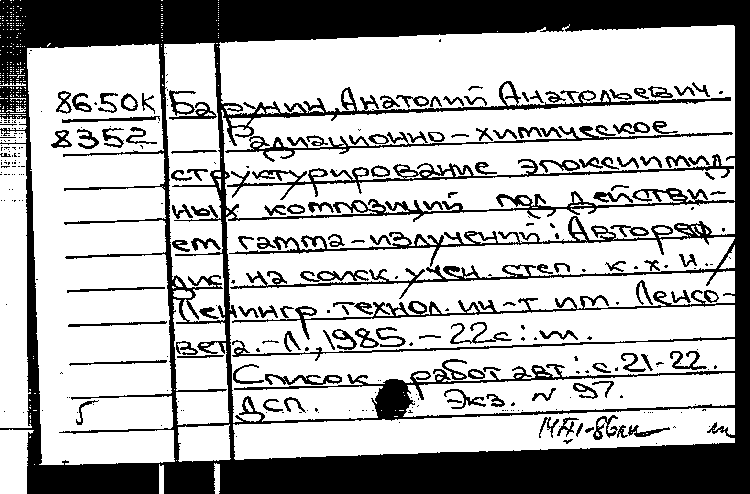 86.50К Барунин, Анатолий Анатольевич.
8352 Радиационно-химическое
структурирование эпоксиимид-
ных композиций под действи-
ем гамма-излучений: Автореф.
дис. на соиск. учен. степ. к. х. н. /
Ленингр. технол. ин-т им. Ленсо-
вета. - Л., 1985. - 22с.: ил.
Список работ авт.: с. 21-22.
5 ДСП. Экз. N 97.